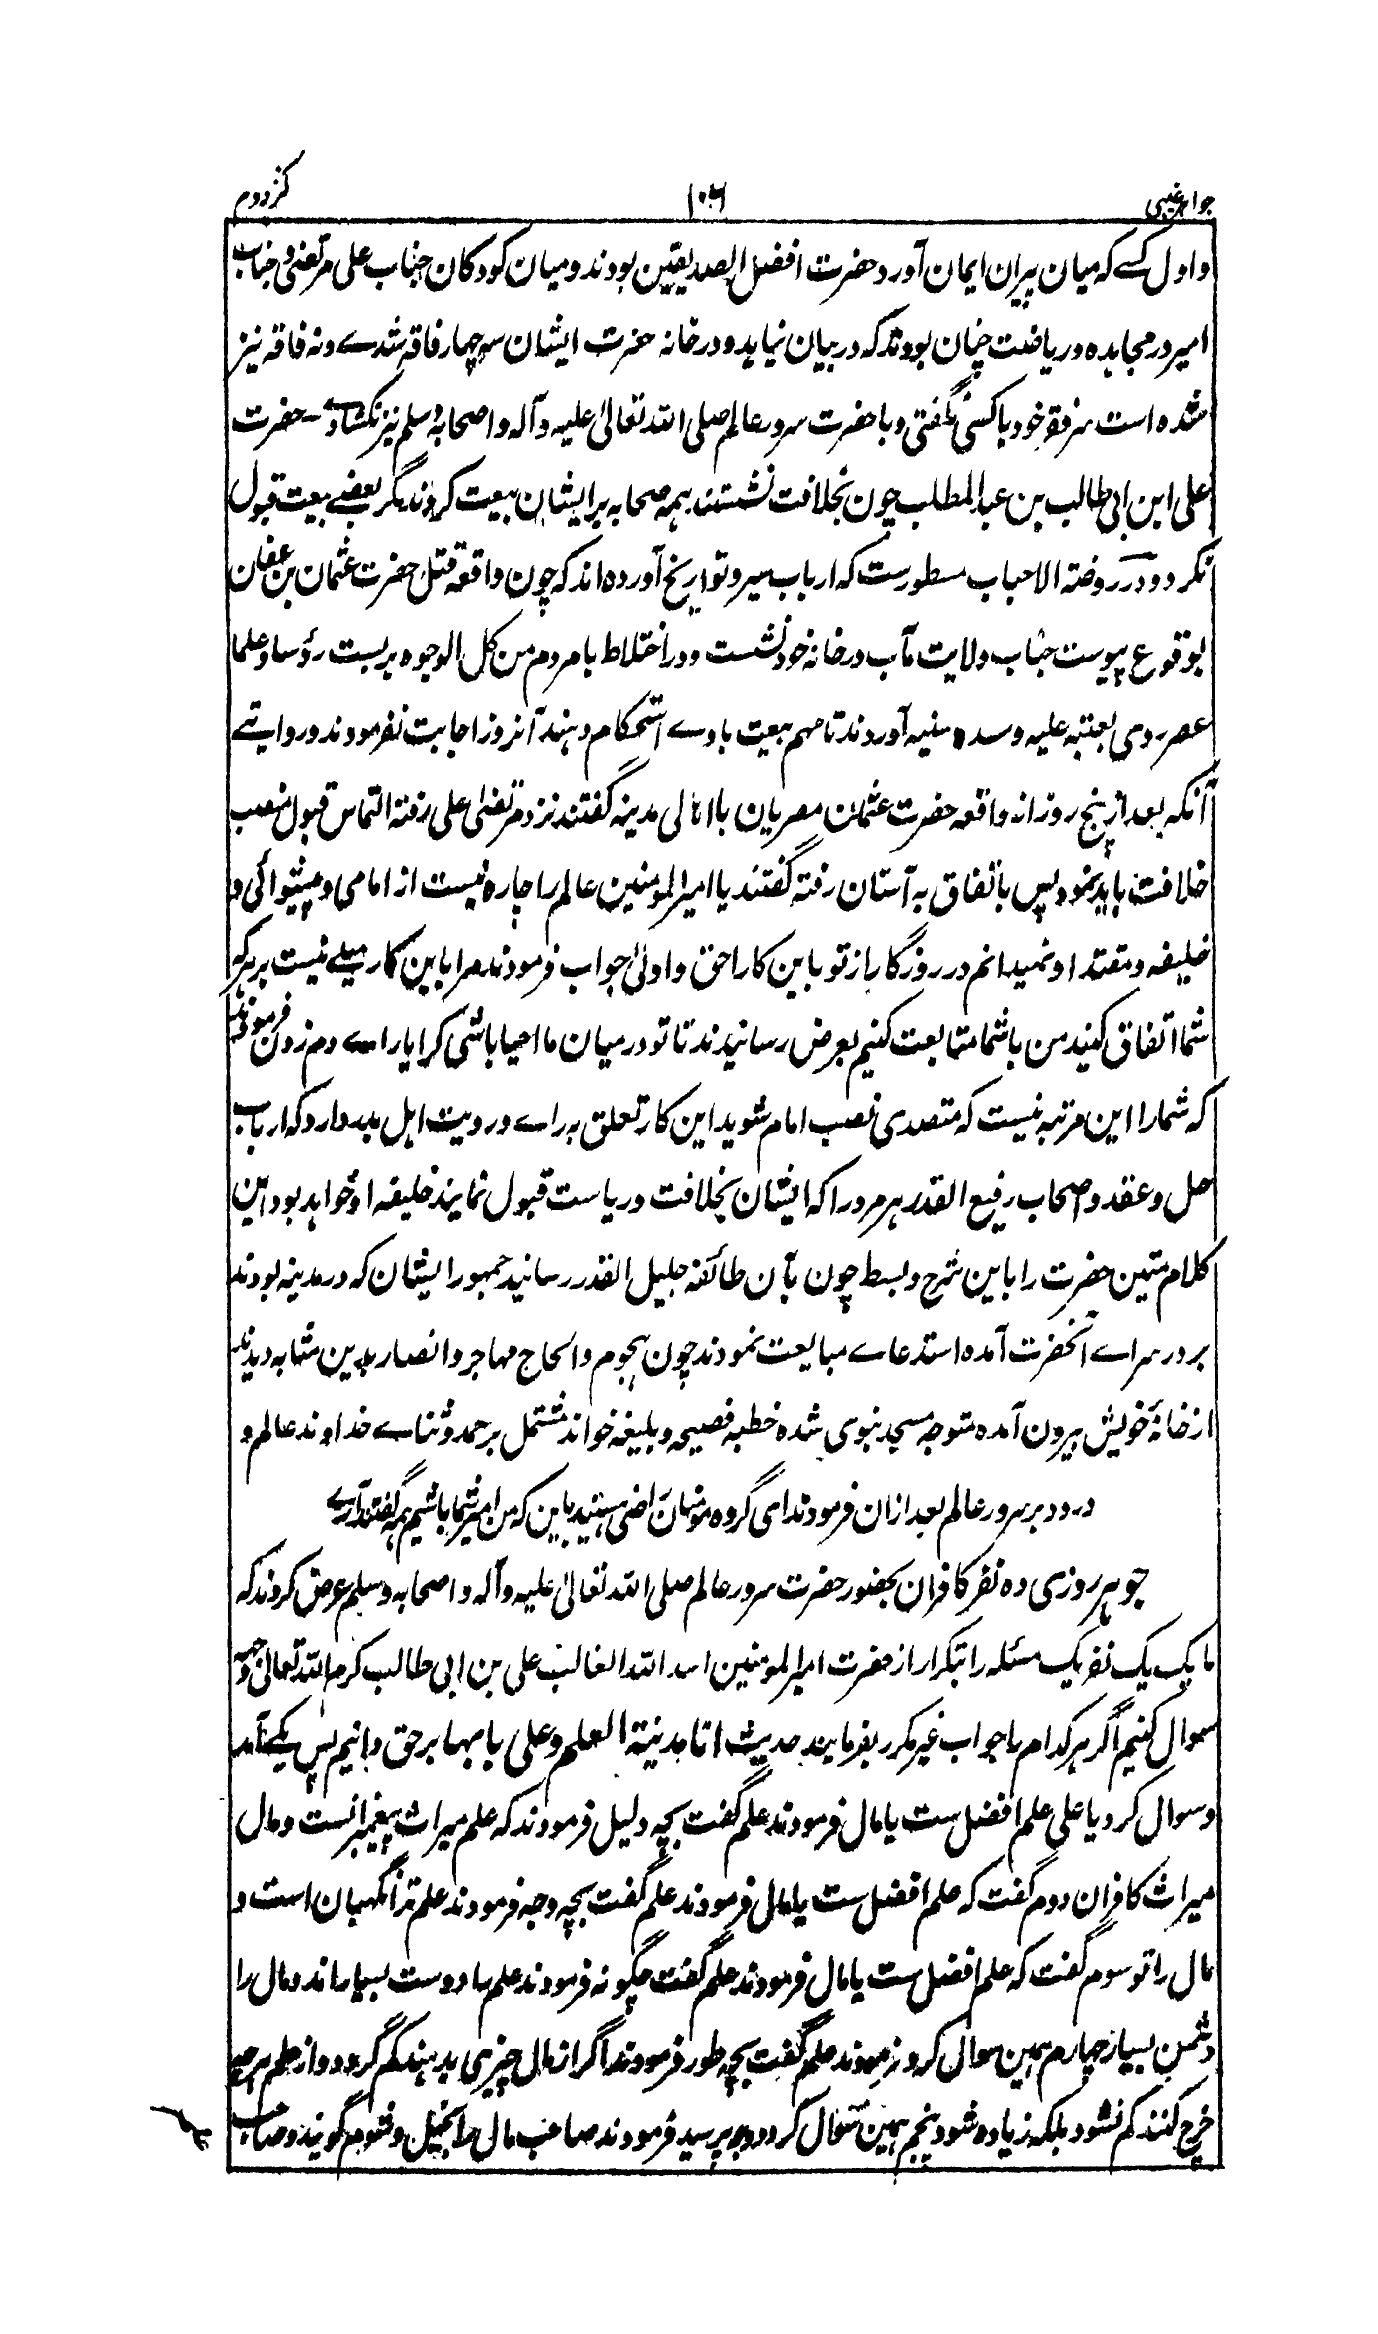 جواهر غیبی ۱۰۶ کنز دوم
و اول کسے که میان پیران ایمان آورد حضرت افضل الصدیقین بودند و میان کودکان جناب علی مرتضی و جناب
امیر در مجاهده و ریاضت چنان بودند که در بیان نیاید و در خانه حضرت ایشان سه چهار فاقه شدے و نه فاقه نیز
شده است سر فقر خود با کسی نگفتی و با حضرت سرور عالم صلی الله تعالیٰ علیه و آله و اصحابه و سلم نیز نکشادے - حضرت
علی ابن ابی طالب بن عبد المطلب چون بخلافت نشستند همه صحابه بر ایشان بیعت کردند مگر بعضے بیعت قبول
نکرد و در روضته الاحباب مسطورست که ارباب سیر و تواریخ آورده اند که چون واقعه قتل حضرت عثمان بن عفان
بوقوع پیوست جناب ولایت مآب در خانه خود نشست و در اختلاط با مردم من کل الوجوه بر بست رؤسا و علما
عصر روی بعتبه علیه و سده سنیه آوردند تا مهم بیعت باوے استحکام دهند آنروز اجابت نفرمودند و روایتے
آنکه بعد از پنج روز از واقعه حضرت عثمان مصریان با اهالی مدینه گفتند نزد مرتضی علی رفته التماس قبول منصب
خلافت باید نمود پس باتفاق به آستان رفته گفتند یا امیر المومنین عالم را چاره نیست از امامی و پیشوائی و
خلیفه و مقتدا و نمیدانم در روزگار از تو باین کار احق و اولیٰ جواب فرمودند مرا باین کار میلے نیست بر هر که
شما اتفاق کنید من با شما متابعت کنیم بعرض رسانیدند تا تو در میان ما احیا باشی کرا یاراے دم زدن فرمودند
که شما را این مرتبه نیست که متصدی نصب امام شوید این کار تعلق به راے و رویت اهل بدر دارد که ارباب
حل و عقد و اصحاب رفیع القدر هر مرد را که ایشان بخلافت و ریاست قبول نمایند خلیفه او خواهد بود این
کلام متین حضرت را باین شرح و بسط چون بآن طائفه جلیل القدر رسانید جمهور ایشان که در مدینه بودند
بر در سراے آنحضرت آمده استدعاے مبایعت نمودند چون هجوم و الحاح مهاجر و انصار بدین مثابه دیدند
از خانۀ خویش بیرون آمده متوجه مسجد نبوی شده خطبه فصیحه و بلیغه خواند مشتمل بر حمد و ثناے خداوند عالم و
درود بر سرور عالم بعد ازان فرمودند ای گروه مومنان راضی هستید باین که من امیر شما باشیم همه گفتند آرے
جوهر روزی ده نفر کافران بحضور حضرت سرور عالم صلی الله تعالیٰ علیه و آله و اصحابه و سلم عرض کردند که
ما یک یک نفر یک مسئله را بتکرار از حضرت امیر المومنین اسد الله الغالب علی بن ابی طالب کرم الله تعالیٰ وجهه
سوال کنیم اگر هر کدام را جواب غیر مکرر بفرمایند حدیث انا مدینة العلم و علی بابها بر حق دانیم پس یکے آمد
و سوال کرد یا علی علم افضل ست یا مال فرمودند علم گفت بچه دلیل فرمودند که علم میراث پیغمبرانست و مال
میراث کافران دوم گفت که علم افضل ست یا مال فرمودند علم گفت بچه وجه فرمودند علم ترا نگهبان است و
مال را تو سوم گفت که علم افضل ست یا مال فرمودند علم گفت چگونه فرمودند علم را دوست بسیار اند و مال را
دشمن بسیار چهارم همین سوال کرد فرمودند علم گفت بچه طور فرمودند اگر از مال چیزی بدهند کم گردد و از علم هر چه
خرج کنند کم نشود بلکه زیاده شود پنجم همین سوال کرد و وجه پرسید فرمودند صاحب مال را بخیل و شوم گویند و صاحب